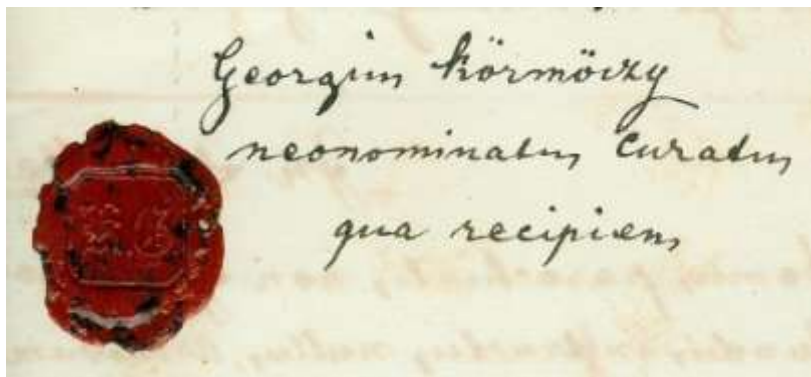 Georgius Körmöczy
neonominatus curatus
qua recipiens